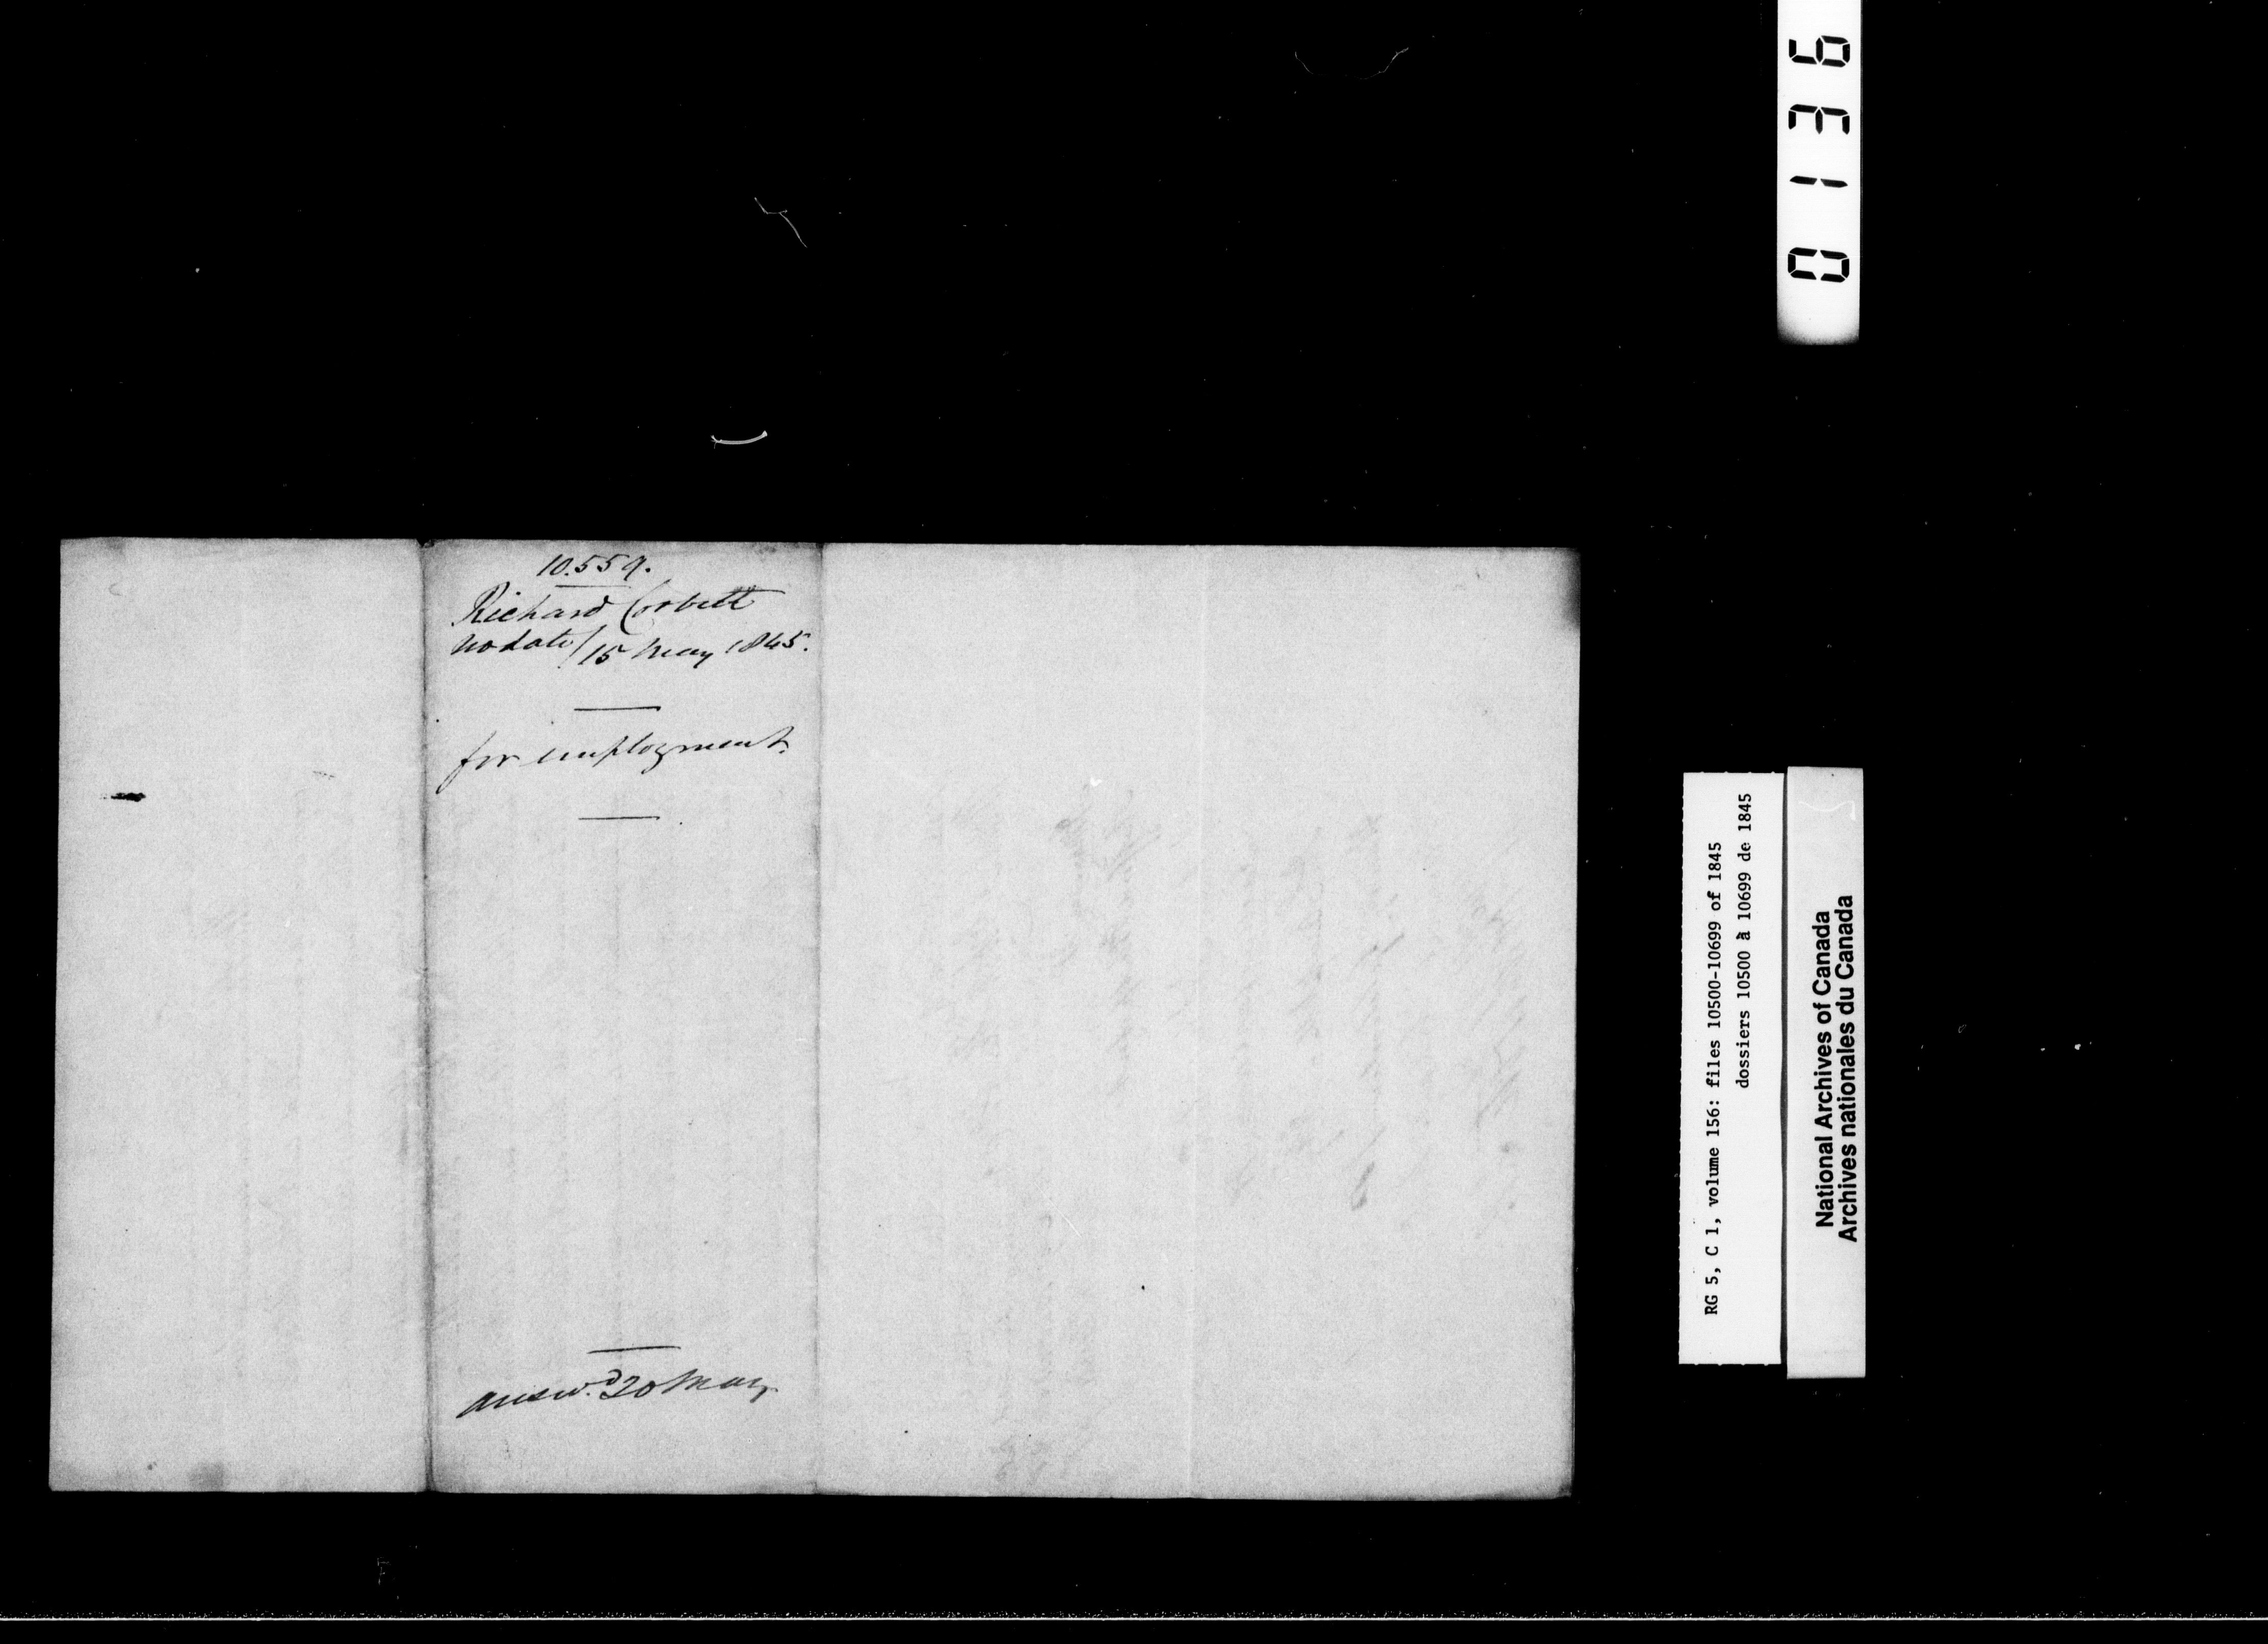 10.559.
Richard Corbett
no date/15 May 1845.
for employment.
answ.d 20 May
0136
RG 5, C 1, volume 156: files 10500-10699 of 1845
dossiers 10500 à 10699 de 1845
National Archives of Canada
Archives nationales du Canada